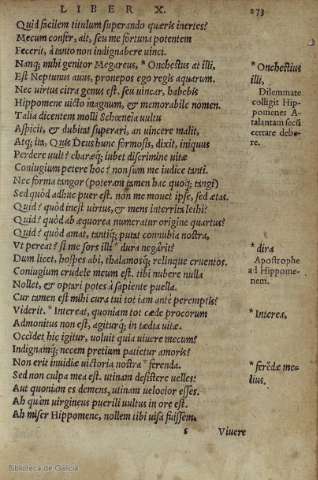 LIBER X.
273
Quid facilem titulum superando quæris inertes?
Mecum confer, ait, seu me fortuna potentem
Fecerit, à tanto non indignabere vinci.
Nanq; mihi genitor Megareus, * Onchestius at illi,
Est Neptunus auus, pronepos ego regis aquarum.
Nec virtus citra genus est, seu vincar, habebis
Hippomene victo magnum, & memorabile nomen.
Talia dicentem molli Schœneia vultu
Aspicit, & dubitat superari, an vincere malit,
Atq; ita, Quis Deus hunc formosis, dixit, iniquus
Perdere vult? charæq; iubet discrimine vitæ
Coniugium petere hoc? non sum me iudice tanti.
Nec forma tangor (poteram tamen hac quoq; tangi)
Sed quòd adhuc puer est. non me mouet ipse, sed ætas.
Quid? quòd inest virtus, & mens interrita lethi?
Quid? quòd ab æquorea numeratur origine quartus?
Quid? quòd amat, tantiq; putat connubia nostra,
Vt pereat? si me sors illi * dura negârit?
Dum licet, hospes abi, thalamosq́; relinque cruentos.
Coniugium crudele meum est. tibi nubere nulla
Nollet, & optari potes à sapiente puella.
Cur tamen est mihi cura tui tot iam antè peremptis?
Viderit. * Intereat, quoniam tot cæde procorum
Admonitus non est, agiturq́; in tædia vitæ.
Occidet hic igitur, voluit quia viuere mecum?
Indignamq́; necem pretium patietur amoris?
Non erit inuidiæ victoria nostra * ferenda.
Sed non culpa mea est. vtinam desistere velles:
Aut quoniam es demens, vtinam velocior esses.
Ah quàm virgineus puerili vultus in ore est.
Ah miser Hippomene, nollem tibi visa fuissem.
s
Viuere
* Onchestius
illi,
Dilemmate
colligit Hip-
pomenes A-
talantam secũ
certare debe-
re.
* dira
Apostrophe
ad Hippome-
nem.
* Interea,
* ferēdæ me-
lius,
Biblioteca de Galicia